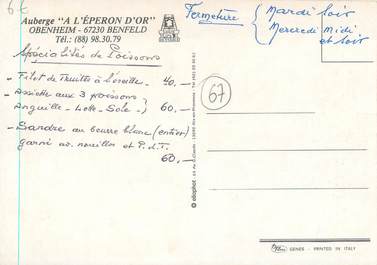 6€
Auberge "A L'ÉPERON D'OR"
OBENHEIM - 67230 BENFELD
Tél.: (88) 98.30.79
Fermeture { Mardi Soir
Mercredi Midi
et Soir
Spécialités de Poissons
- Filet de Truites à l'oseille - 40.-
- Assiette aux 3 poissons }
Anguille - Lotte - Sole } 60.-
- Sandre au beurre blanc (entier)
garni av. nouilles et P.d.T.
60.-
67
elcophot
GENES - PRINTED IN ITALY